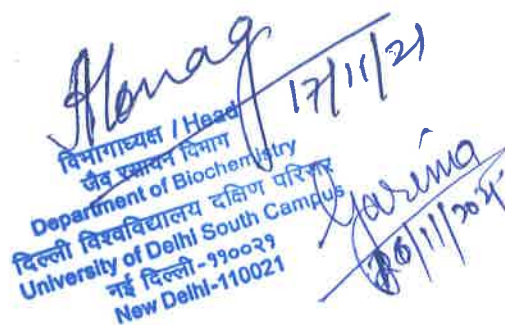 17/11/21
विभागाध्यक्ष / Head
जैव रसायन विभाग
Department of Biochemistry
दिल्ली विश्वविद्यालय दक्षिण परिसर
University of Delhi South Campus
नई दिल्ली-११००२१
New Delhi-110021
Garima